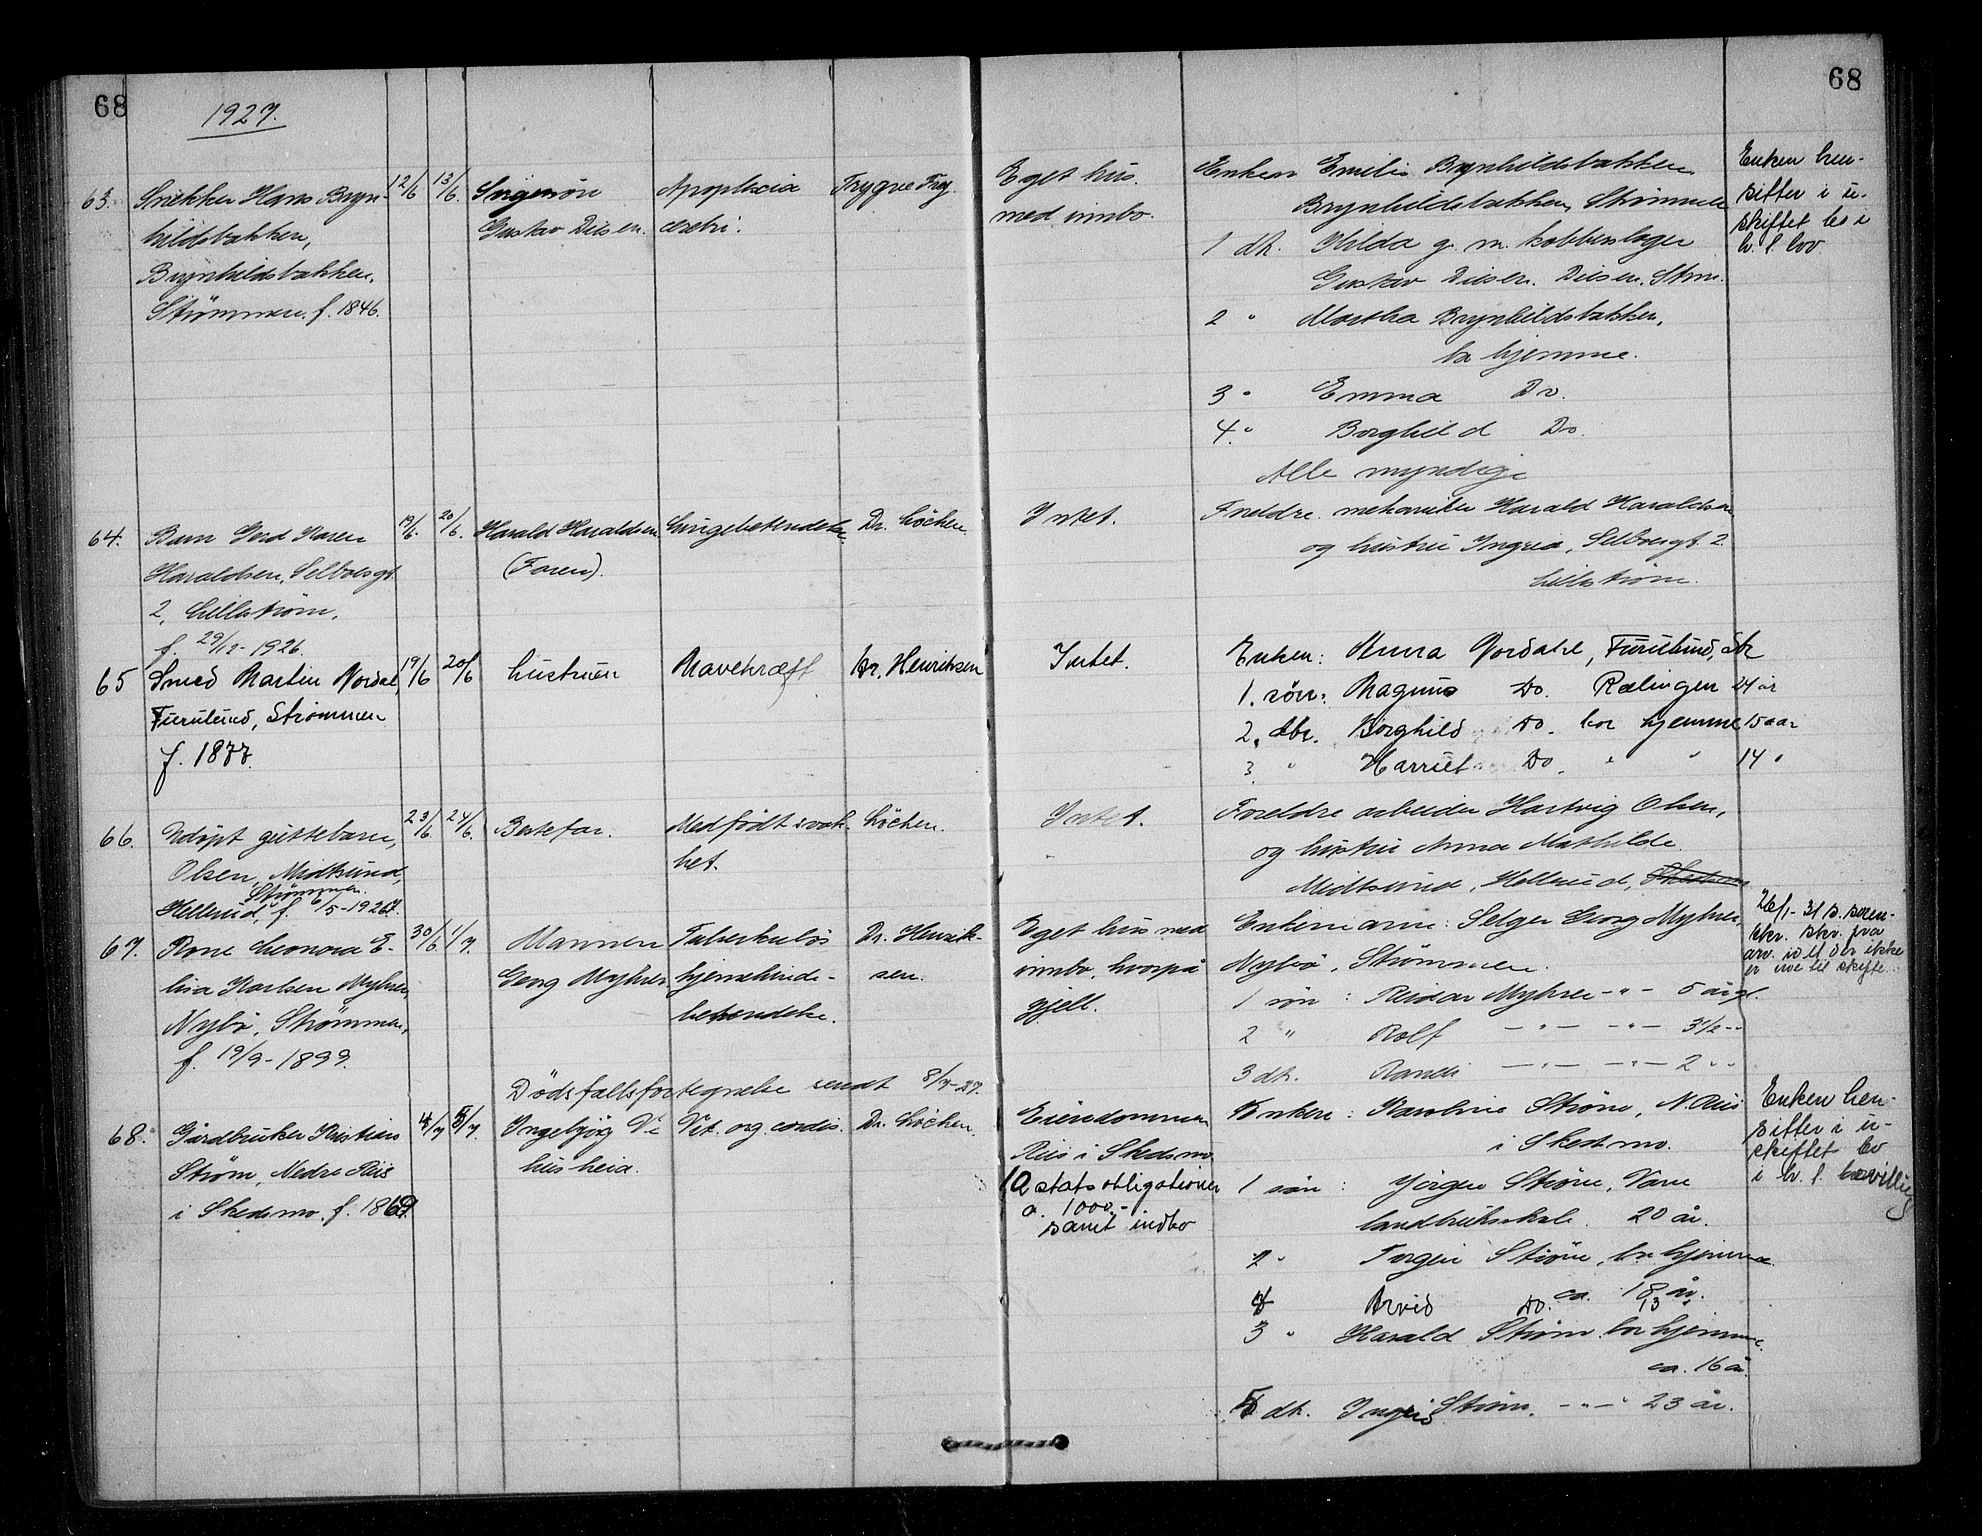 68
1927.
68
63. Snekker Hans Bryn-
hildsbakken,
Brynhildsbakken,
Strømmen. f. 1846.
12/6 13/6.
Svigersøn
Gustav Diesen.
Apoplexia
cerebri.
Trygve Frey.
Eget hus.
med innbo.
Enken Emilie Brynhildsbakken
Brynhildsbakken, Strømmen
1 dt. Hilda g. m. kobberslager
Gustav Diesen. Diesen. Strm.
2 " Martha Brynhildsbakken,
bor hjemme.
3 " Emma Do.
4. " Borghild Do.
Alle myndige
Enken hen-
sitter i u-
skiftet bo i
h. t. lov.
64. Barn Gerd Karen
Haraldsen, Selboesgt.
2, Lillestrøm.
f. 29/12-1926.
19/6. 20/6.
Harald Haraldsen
(Faren).
Lungebetendelse.
Dr. Löchen.
Intet.
Foreldre. mekaniker Harald Haraldsen
og hustru Ingrid, Selboesgt. 2
Lillestrøm.
65 Smed Martin Nordal,
Furulund, Strømmen
f. 1877.
19/6 20/6
hustruen
Mavekræft
Dr. Henriksen
Intet.
Enken: Anna Nordahl, Furulund, Str
1. søn: Magnus Do. Rælingen 24 år
2. dtr. Borghild Do. bor hjemme 15 aar
3 " Harriet Do. " " 14 "
66. Udøpt guttebarn,
Olsen, Midtsund,
Strømmen.
Hellerud, f. 6/5-1927.
23/6 24/6.
Bestefar.
Medfödt svak-
het.
Löchen.
Intet.
Foreldre arbeider Hartvig Olsen,
og hustru Anna Mathilde
Midtsund, Hellerud,
67. Kone Leonora E-
lisa Karlsen Myhrer,
Nybö, Strømmen,
f. 19/9-1899.
30/6 1/7.
Mannen
Georg Myhrer
Tuberkuløs
hjernehinde-
betendelse.
Dr. Henrik-
sen.
Eget hus med
innbo, hvorpå
gjell.
Enkemann: Selger Georg Myhrer,
Nybö, Strømmen.
1 søn : Reidar Myhrer -"- 5 år gl.
2 " Rolf -"- -"- 3 1/2 -"
3 dt. Randi -"- -"- 2 "
26/1-31 s. seren-
skr. skv. fra
arv. idet der ikke
er noe til skifte.
Dödsfallsfortegnelse sendt 8/7-27.
68. Gårdbruker Kristian
Strøm, Nedre Riis
i Skedsmo. f. 1869.
4/7 5/7.
Ingebjörg
husheia.
Vit. org. cordis.
Dr. Löchen.
Eiendommen
Riis i Skedsmo
10 statsobligationer
a. 1000.-
samt indbo
Enken : Karoline Strøm, N. Riis
i Skedsmo.
1 søn : Jörgen Strøm, Vane
landbruksskole. 20 år.
2 " Torgeir Strøm, bor hjemme
ca. 18 år.
4 Arvid Do. 13 "
3 " Harald Strøm bor hjemme.
ca. 16 år.
5 dt. Ingrid Strøm. -"- " 23 år.
Enken hen-
sitter i u-
skiftet bo
i h. t. bevilling